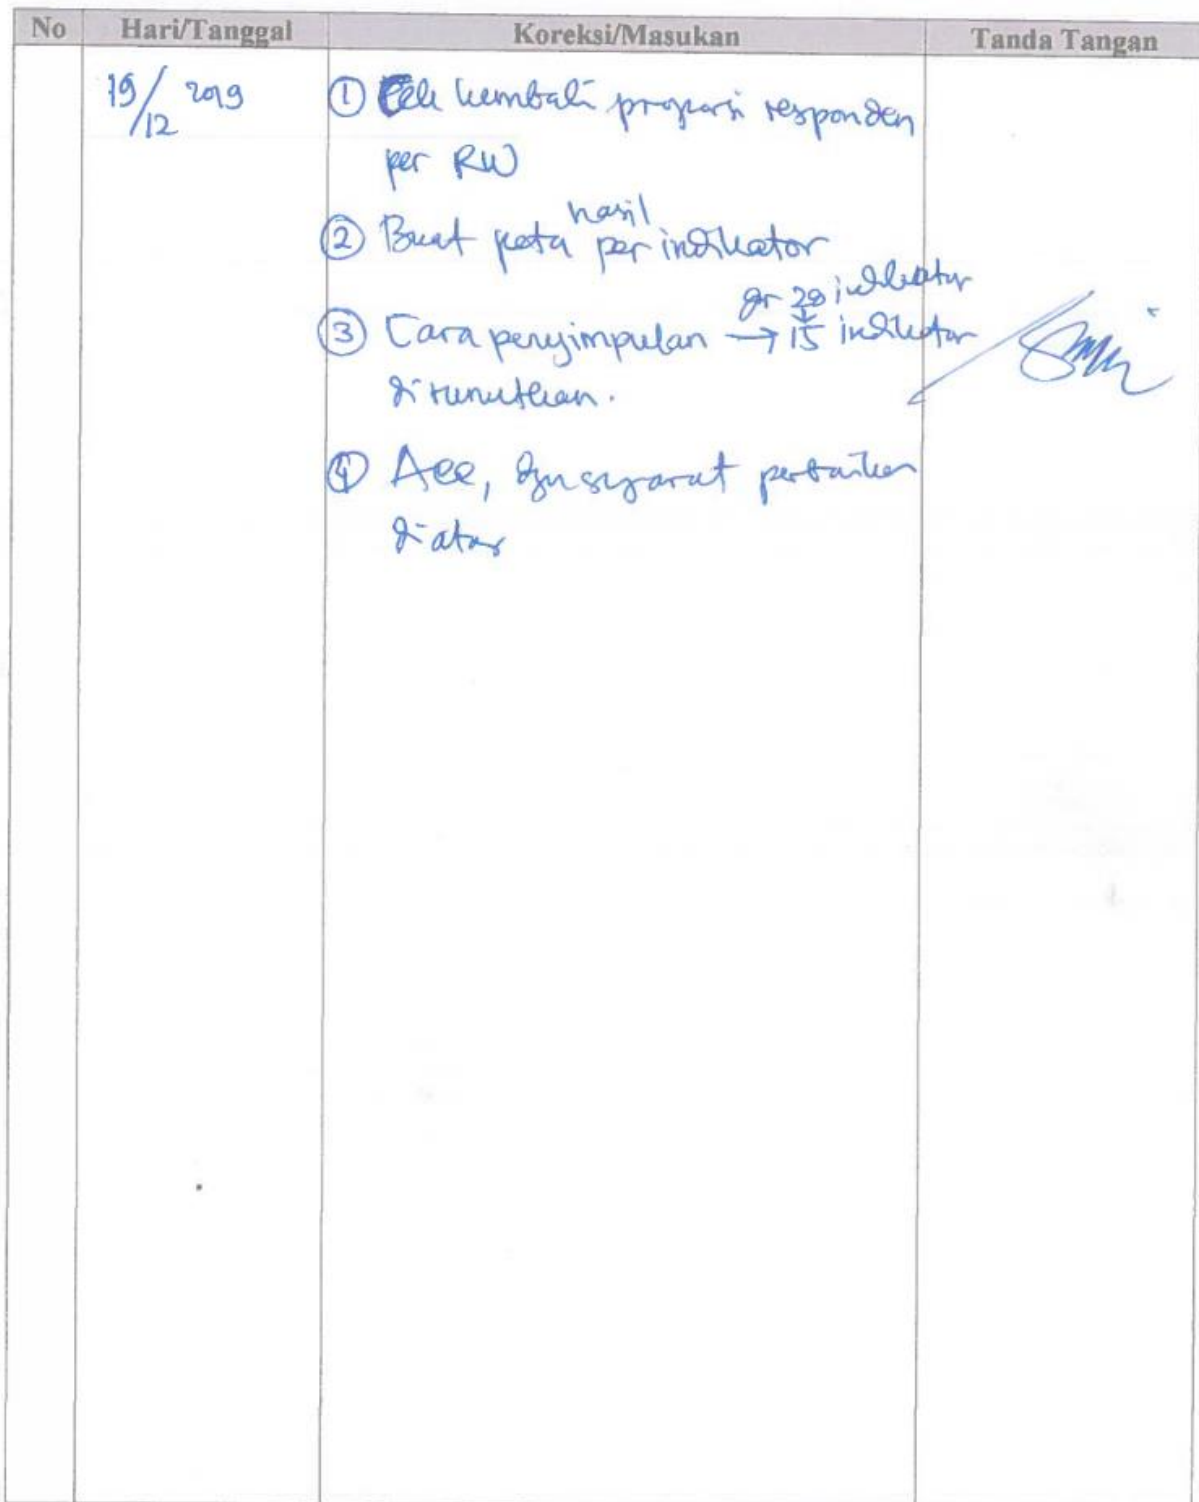 No Hari/Tanggal Koreksi/Masukan Tanda Tangan
19/12 2019
① Cek kembali proporsi responden
per RW
② Buat peta hasil per indikator
dr 28 indikator
③ Cara penyimpulan → 15 indikator
dirunutkan.
④ Acc, dgn syarat perbaikan
diatas